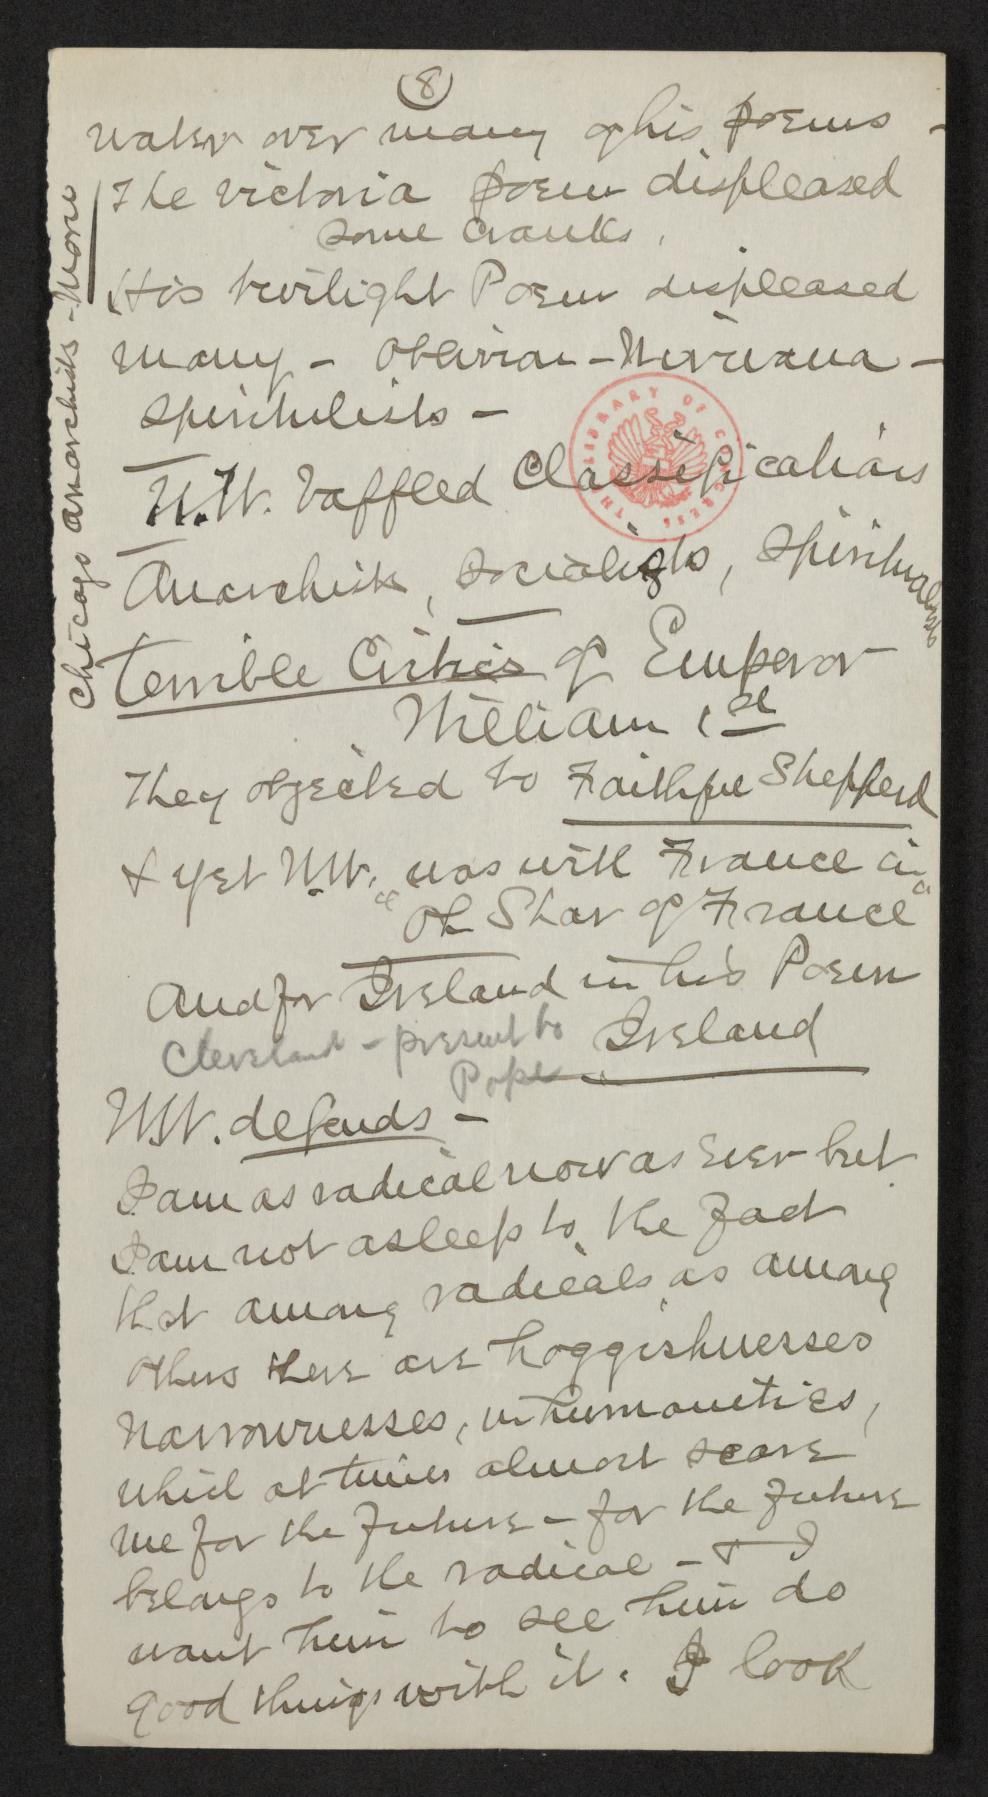 8
water over many of his poems -
The victoria poem displeased
some cranks.
His twilight Poem displeased
many - Oblivion - Nirivana -
Spiritulists -
W.W. baffled Classifications
Anarchists, socialists, Spiritualists
terrible Critics of Emperor
William 1st
They objected to Faithful Shepherd
& yet W.W. was with France in
"Oh Star of France"
And for Ireland in his Poem
Ireland
Cleveland - present to
Pope
W.W. defends -
I am as radical now as ever but
I am not asleep to the fact
that among radicals as among
others there are hoggishnesses
narrownesses, inhumanities,
which at times almost scare
me for the future - for the future
belongs to the radical - & I
want him to see him do
good things with it. I look
Chicago anarchists - Morse
THE LIBRARY OF CONGRESS